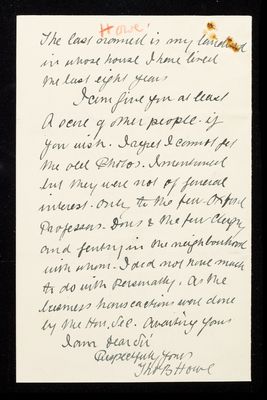 Howe
The last named is my landlord
in whose house I have lived
the last eight years
I can give you at least
A score of other people. if
you wish. I regret I cannot get
the old Photos. I mentioned
but they were not of general
interest. only to the few Oxford
Professors. Dons & the few Clergy
and gentry in the neighbourhood
with whom. I did not have much
to do with Personally. As the
business transactions were done
by the Hon. Sec. Awaiting yours
I am Dear Sir
Respectfully Yours
Thos B Howe